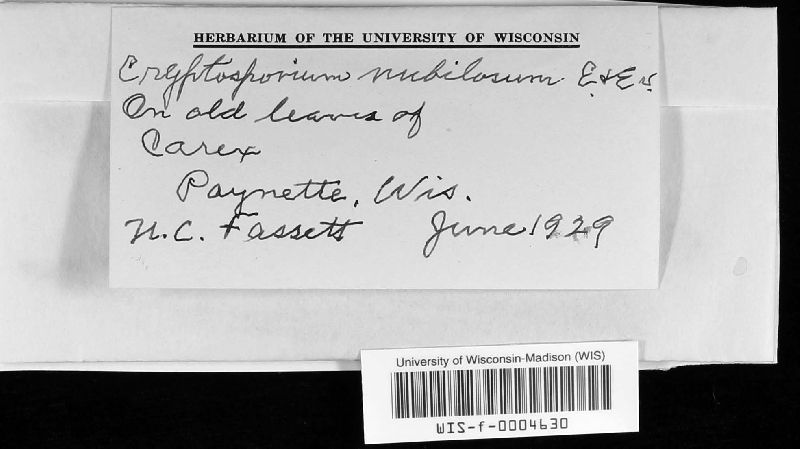 HERBARIUM OF THE UNIVERSITY OF WISCONSIN
Cryptosporium nubilosum E. & Ev.
On old leaves of
Carex
Poynette, Wis.
N.C. Fassett June 1929
University of Wisconsin-Madison (WIS)
WIS-f-0004630